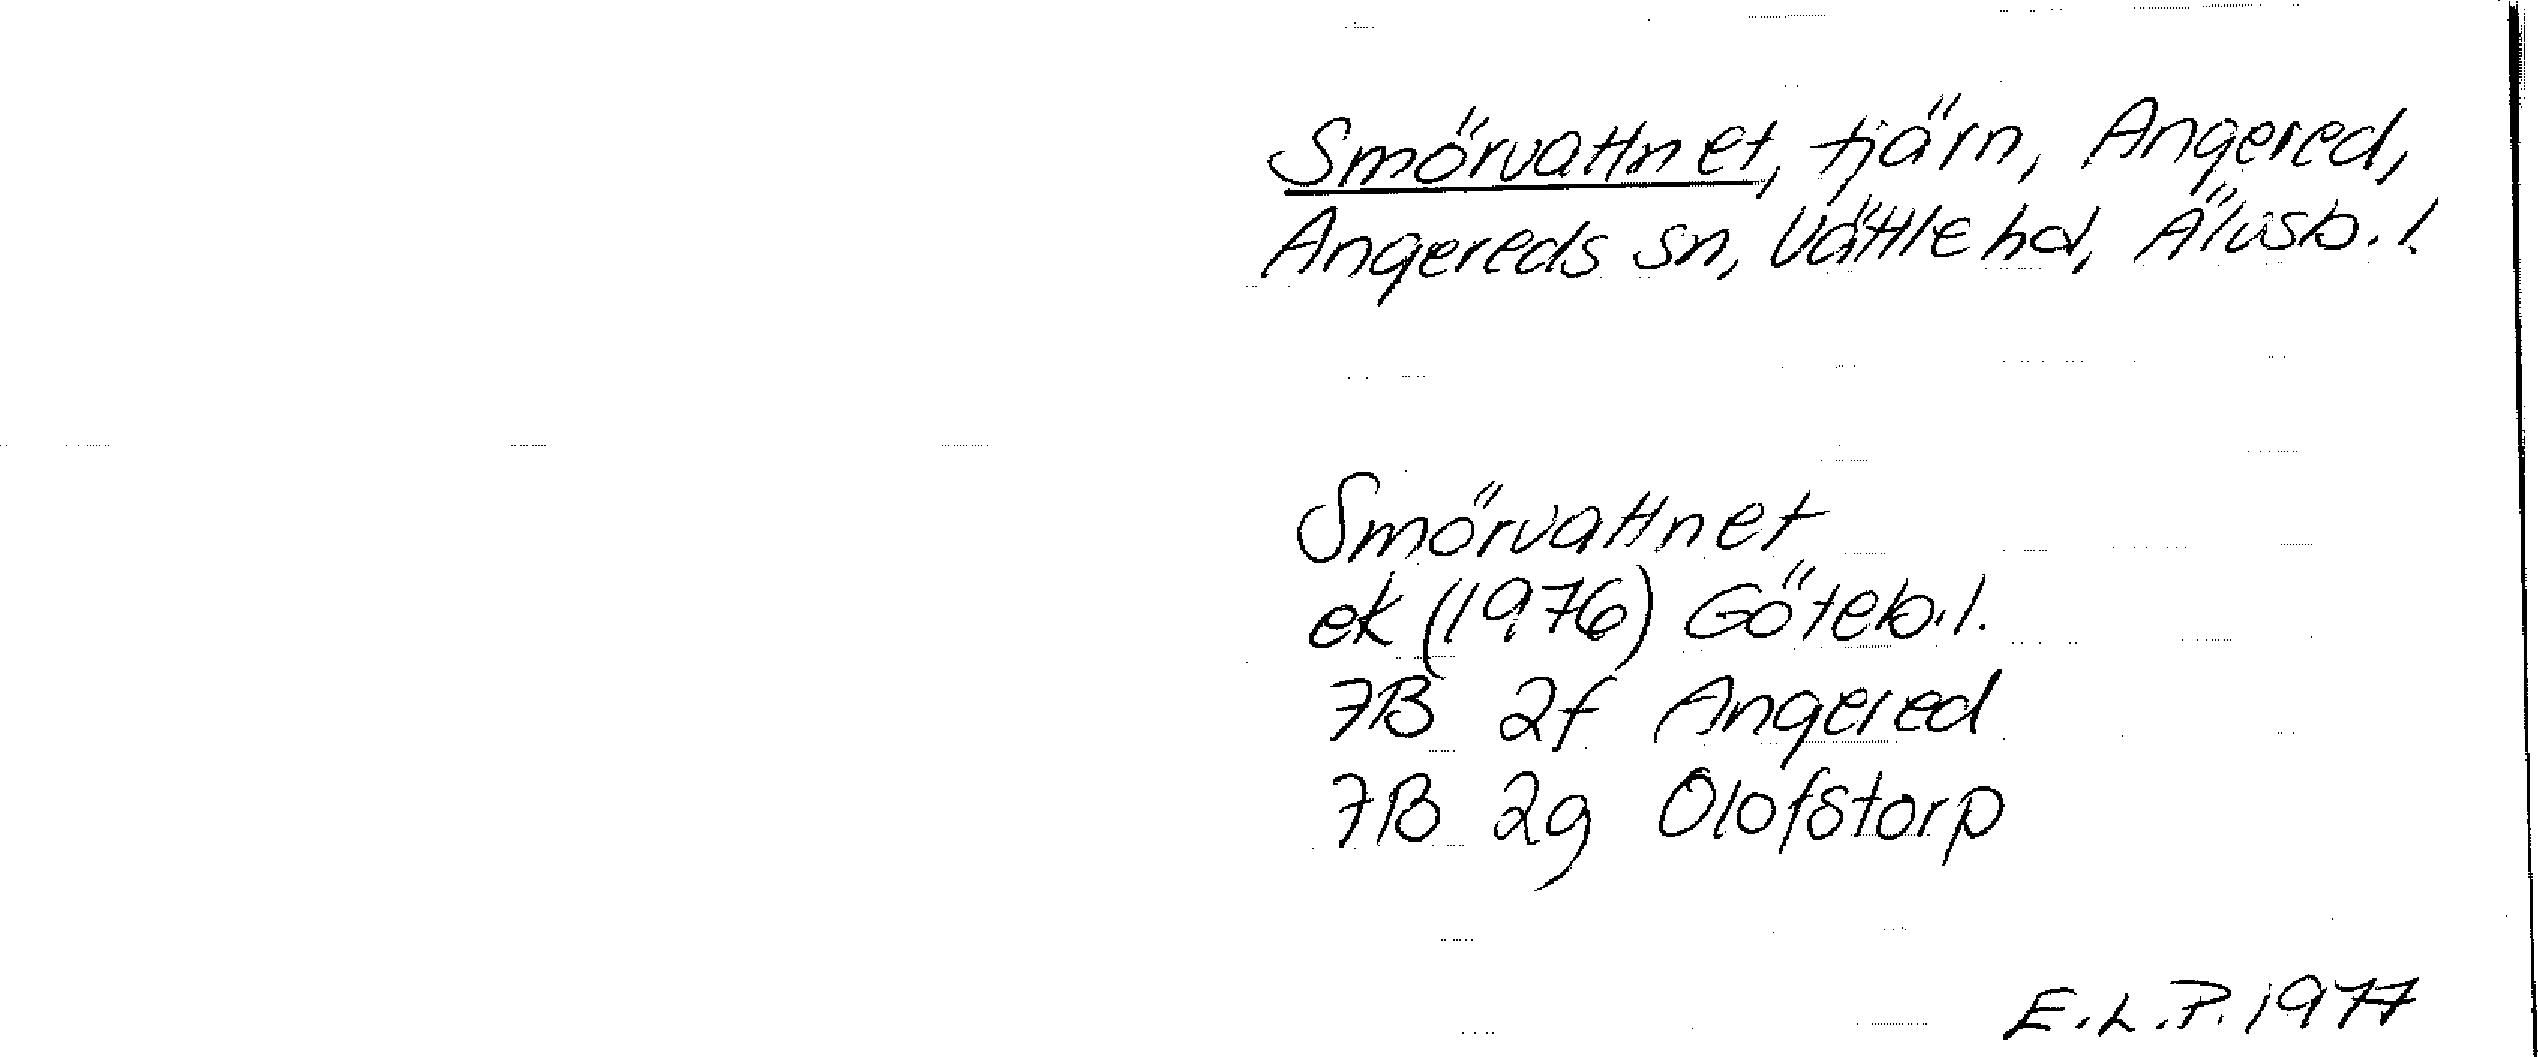 Smörvattnet, tjärn, Angered,
Angereds sn, Vättle hd, Älvsb. l.
Smörvattnet
ek (1976) Göteb. l.
7B 2f Angered
7B 2g Olofstorp
E. L. P. 1977